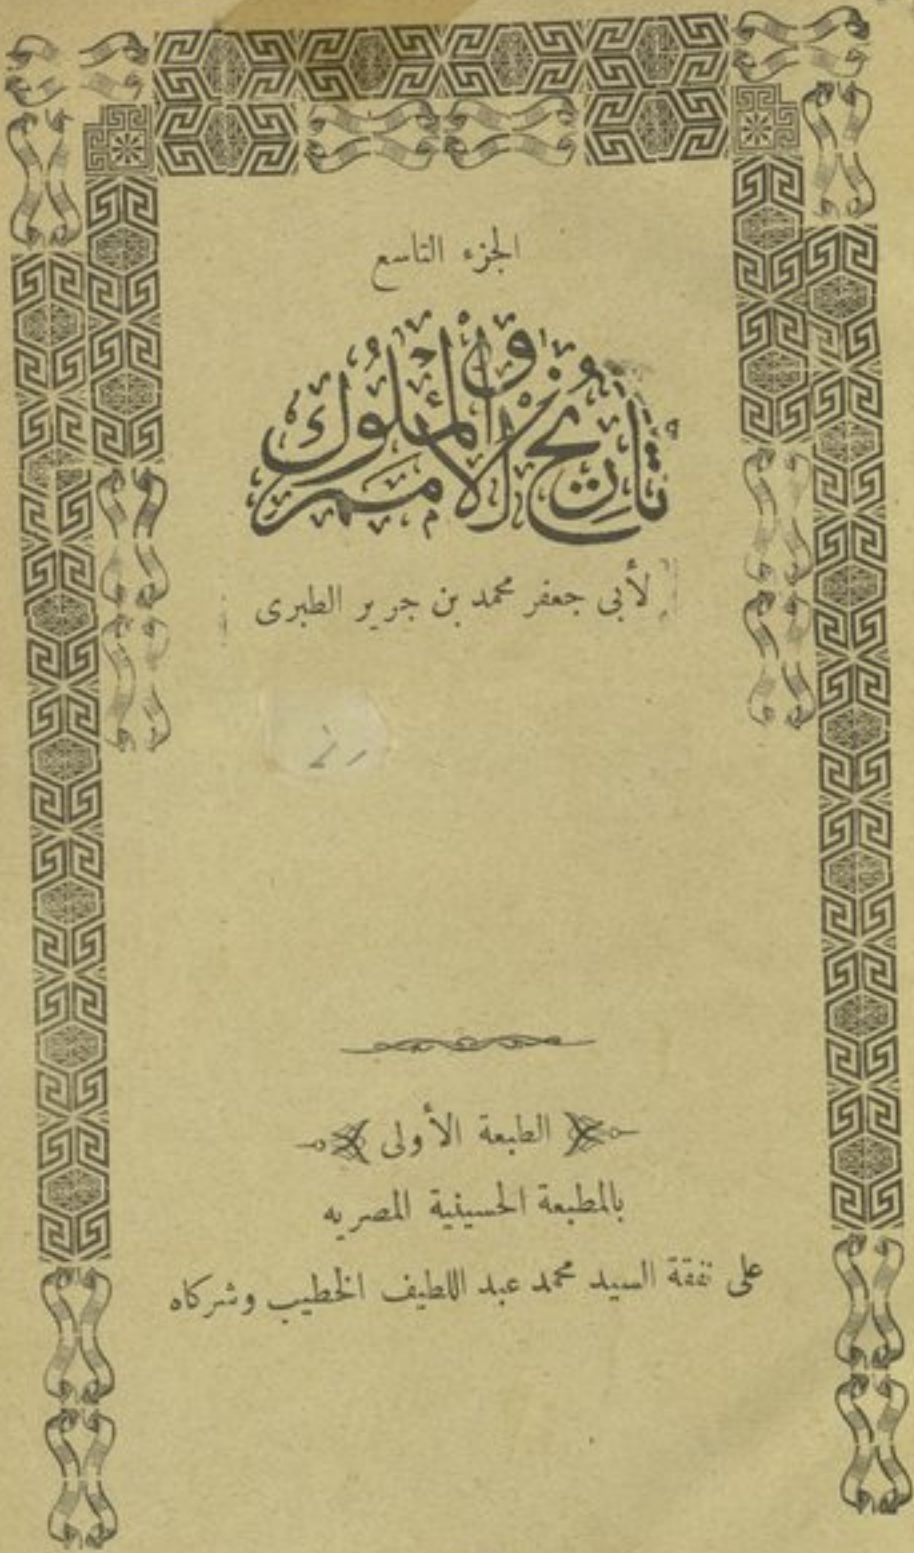 الجزء التاسع
تاريخ الأمم والملوك
لأبى جعفر محمد بن جرير الطبرى
الطبعة الأولى
بالمطبعة الحسينية المصريه
على نفقة السيد محمد عبد اللطيف الخطيب وشركاه